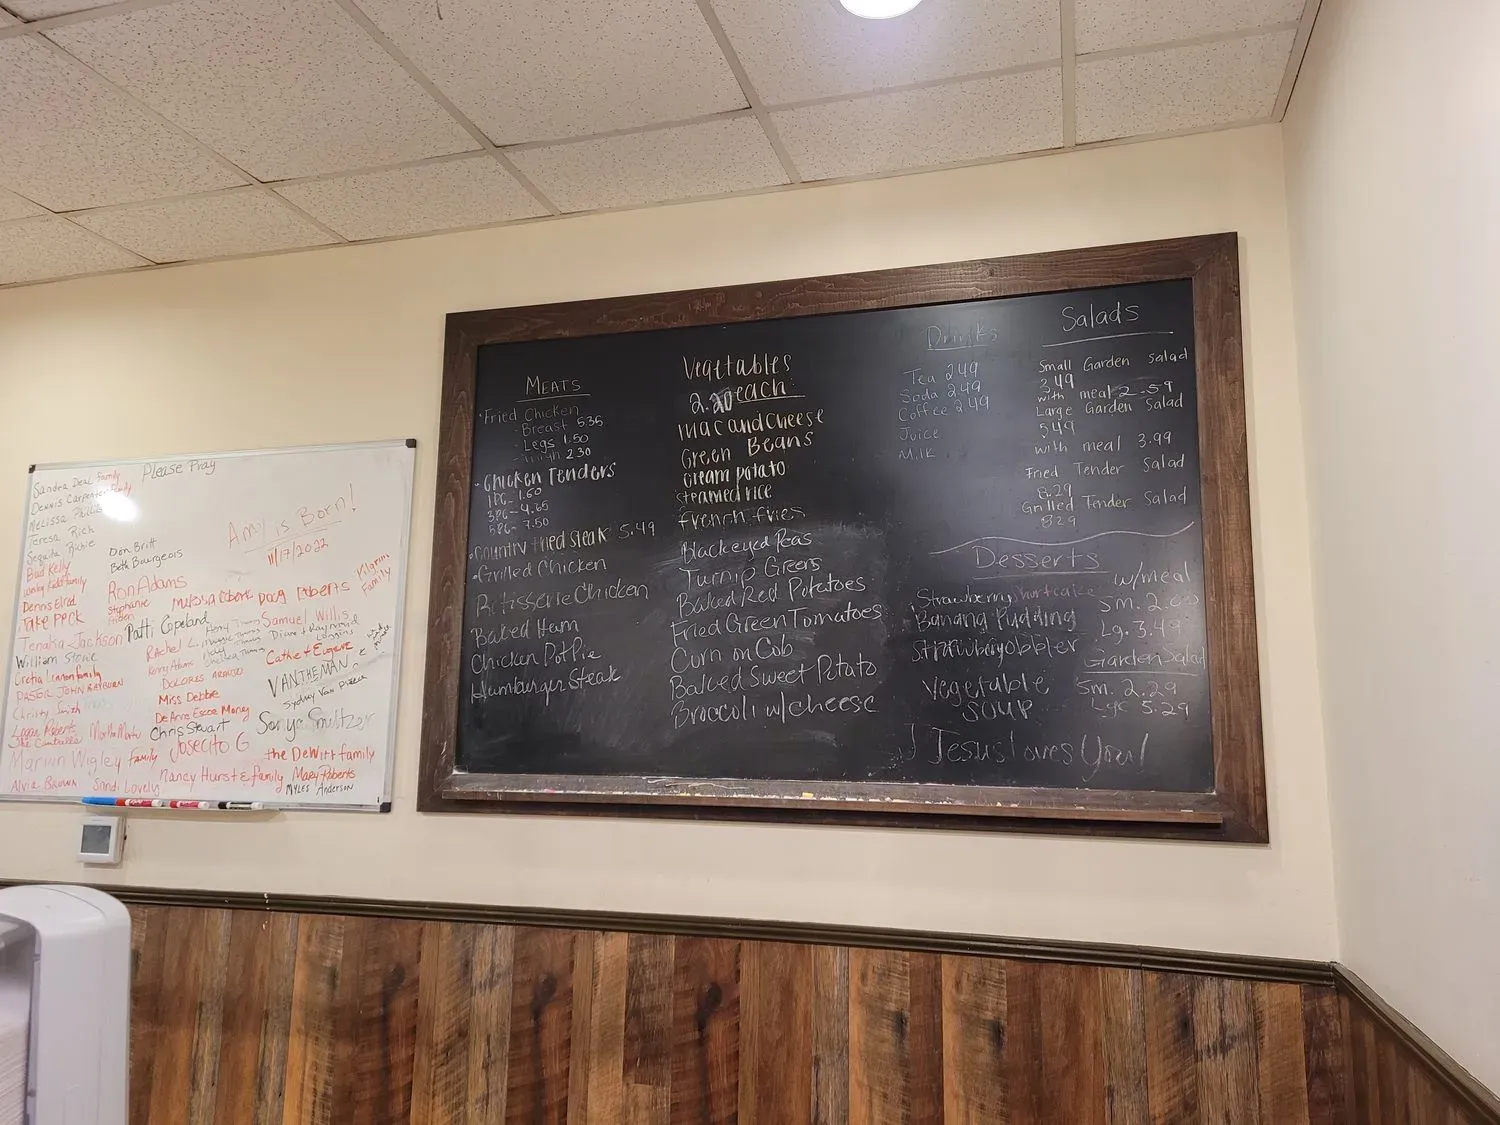 Please Pray
Sandra Deal family
Dennis Carpenter family
Melissa Phillis
Teresa Rich
Brad Kelly
Dennis Elrod
Jake Peck
Tenaka Jackson
William Stone
Greta Lennon family
PASTOR JOHN RAYBURN
Christy Smith
Logan Roberts
Marvin Wigley family
Alvie Brown
Sandi Lovely
Don Britt
Beth Bourgeois
Ron Adams
Stephanie
Patti Copeland
Rachel L.
Kenny Adams
DOLORES
Miss Debbie
De Anne Escoe Money
Chris Stuart
Josecito G
Nancy Hurst & family
Amy is Born!
11/17/2022
Doug Roberts
Pilgrim
Family
Samuel Willis
Diane & Raymond
Loggins
Cathe & Eugene
VANTHEMAN
Sydney Van Pierce
Sonya Smeltzer
the DeWitt family
Mary Roberts
MYLES Anderson
MEATS
Fried Chicken
- Breast 5.35
- Legs 1.50
2.30
Chicken Tenders
1 pc - 1.60
3 pc - 4.65
5 pc - 7.50
Country fried steak 5.49
Grilled Chicken
Rotisserie Chicken
Baked Ham
Chicken Pot Pie
Hamburger Steak
Vegetables
2.20 each
mac and Cheese
Green Beans
cream potato
steamed rice
french fries
Blackeyed Peas
Turnip Greens
Baked Red Potatoes
Fried Green Tomatoes
Corn on Cob
Baked Sweet Potato
Broccoli w/cheese
Drinks
Tea 2.49
Soda 2.49
Coffee 2.49
Juice
Milk
Salads
Small Garden Salad
3.49
with meal 2.59
Large Garden Salad
5.49
with meal 3.99
Fried Tender Salad
8.29
Grilled Tender Salad
8.29
Desserts
Strawberry shortcake
Banana Pudding
Strawberry cobbler
Vegetable
SOUP
w/meal
Sm. 2.
Lg. 3.49
Garden Salad
Sm. 2.29
Lg. 5.29
Jesus Loves You!